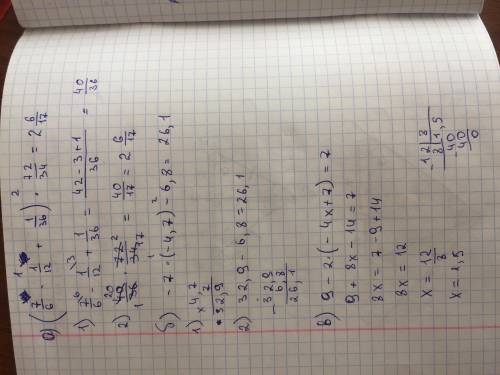 а) (7/6 - 1/12 + 1/36) · 72/34 = 2 6/17
1) 7/6 - 1/12 + 1/36 = 42-3+1/36 = 40/36
2) 40/36 · 72/34 = 40/17 = 2 6/17
б) -7 · (-4,7) - 6,8 = 26,1
1) × 4,7
7
32,9
2) 32,9 - 6,8 = 26,1
- 32,9
6,8
26,1
в) 9 - 2 · (-4x+7) = 7
9 + 8x - 14 = 7
8x = 7 - 9 + 14
8x = 12
x = 12/8
x = 1,5
- 12 | 8
8 | 1,5
- 40
40
0